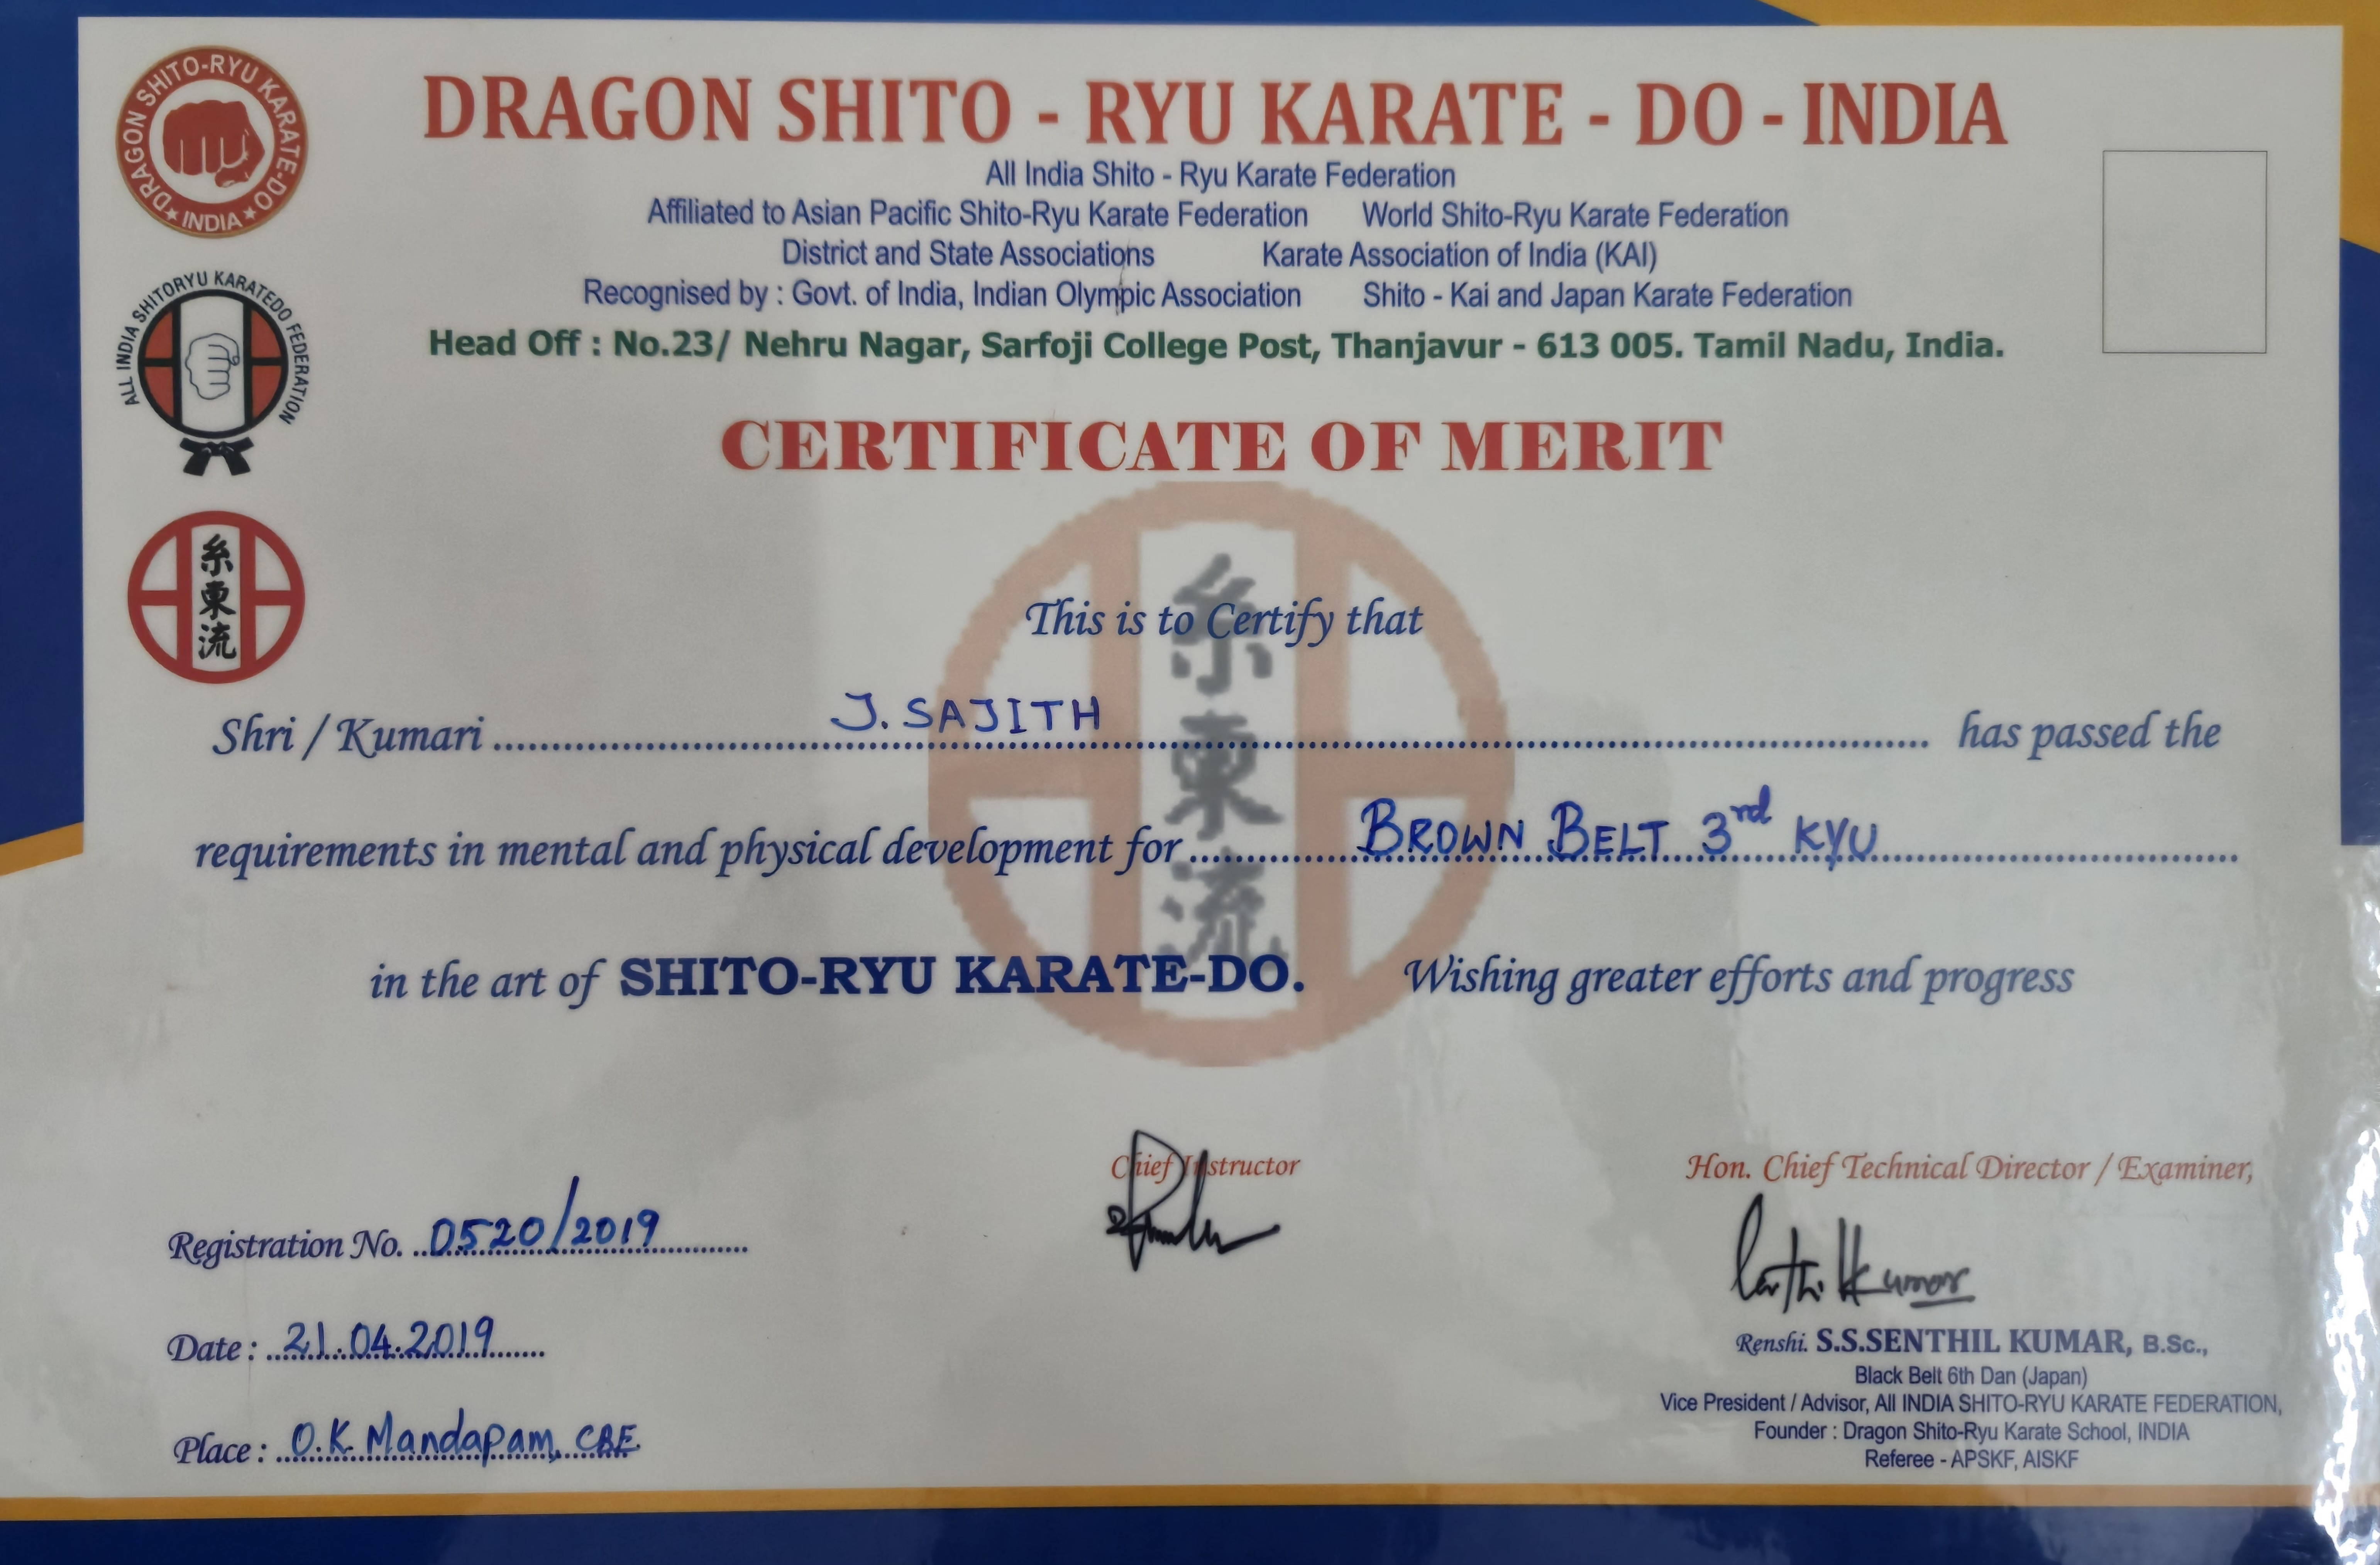 DRAGON SHITO-RYU KARATE-DO
★ INDIA ★
DRAGON SHITO - RYU KARATE - DO - INDIA
All India Shito - Ryu Karate Federation
Affiliated to Asian Pacific Shito-Ryu Karate Federation World Shito-Ryu Karate Federation
District and State Associations Karate Association of India (KAI)
Recognised by : Govt. of India, Indian Olympic Association Shito - Kai and Japan Karate Federation
Head Off : No.23/ Nehru Nagar, Sarfoji College Post, Thanjavur - 613 005. Tamil Nadu, India.
ALL INDIA SHITORYU KARATEDO FEDERATION
CERTIFICATE OF MERIT
糸東流
糸東流
This is to Certify that
Shri / Kumari J. SAJITH has passed the
requirements in mental and physical development for BROWN BELT 3rd KYU
in the art of SHITO-RYU KARATE-DO. Wishing greater efforts and progress
Chief Instructor
Hon. Chief Technical Director / Examiner,
Registration No. 0520/2019
Date : 21.04.2019
Place : O.K. Mandapam, CBE.
Renshi. S.S.SENTHIL KUMAR, B.Sc.,
Black Belt 6th Dan (Japan)
Vice President / Advisor, All INDIA SHITO-RYU KARATE FEDERATION,
Founder : Dragon Shito-Ryu Karate School, INDIA
Referee - APSKF, AISKF